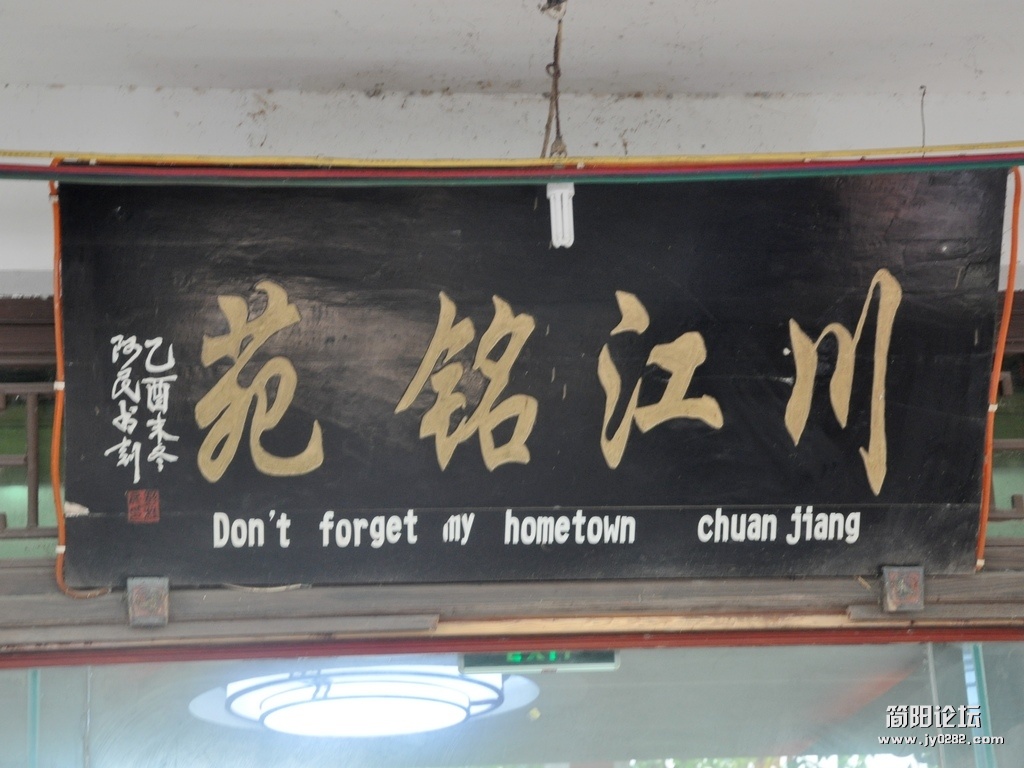 川江铭苑
乙酉末冬
阿民书刻
Don't forget my hometown chuan jiang
简阳论坛
www.jy0282.com